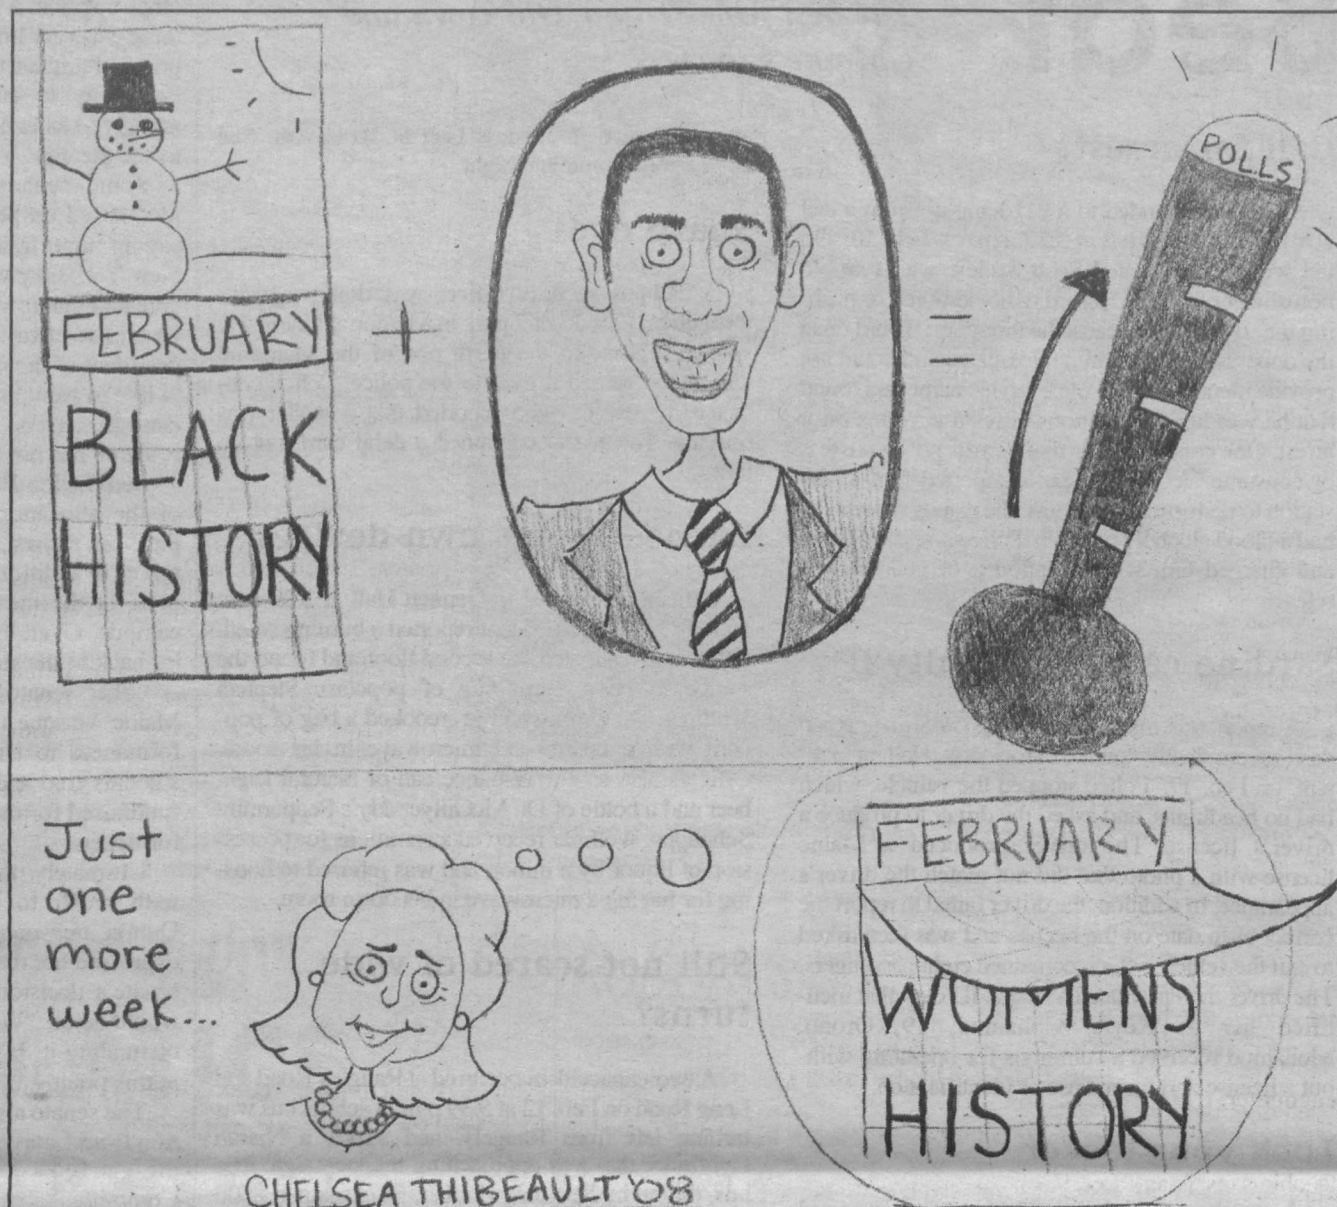 POLLS
FEBRUARY
+
=
BLACK
HISTORY
Just
one
more
week...
FEBRUARY
WOMENS
HISTORY
CHELSEA THIBEAULT '08